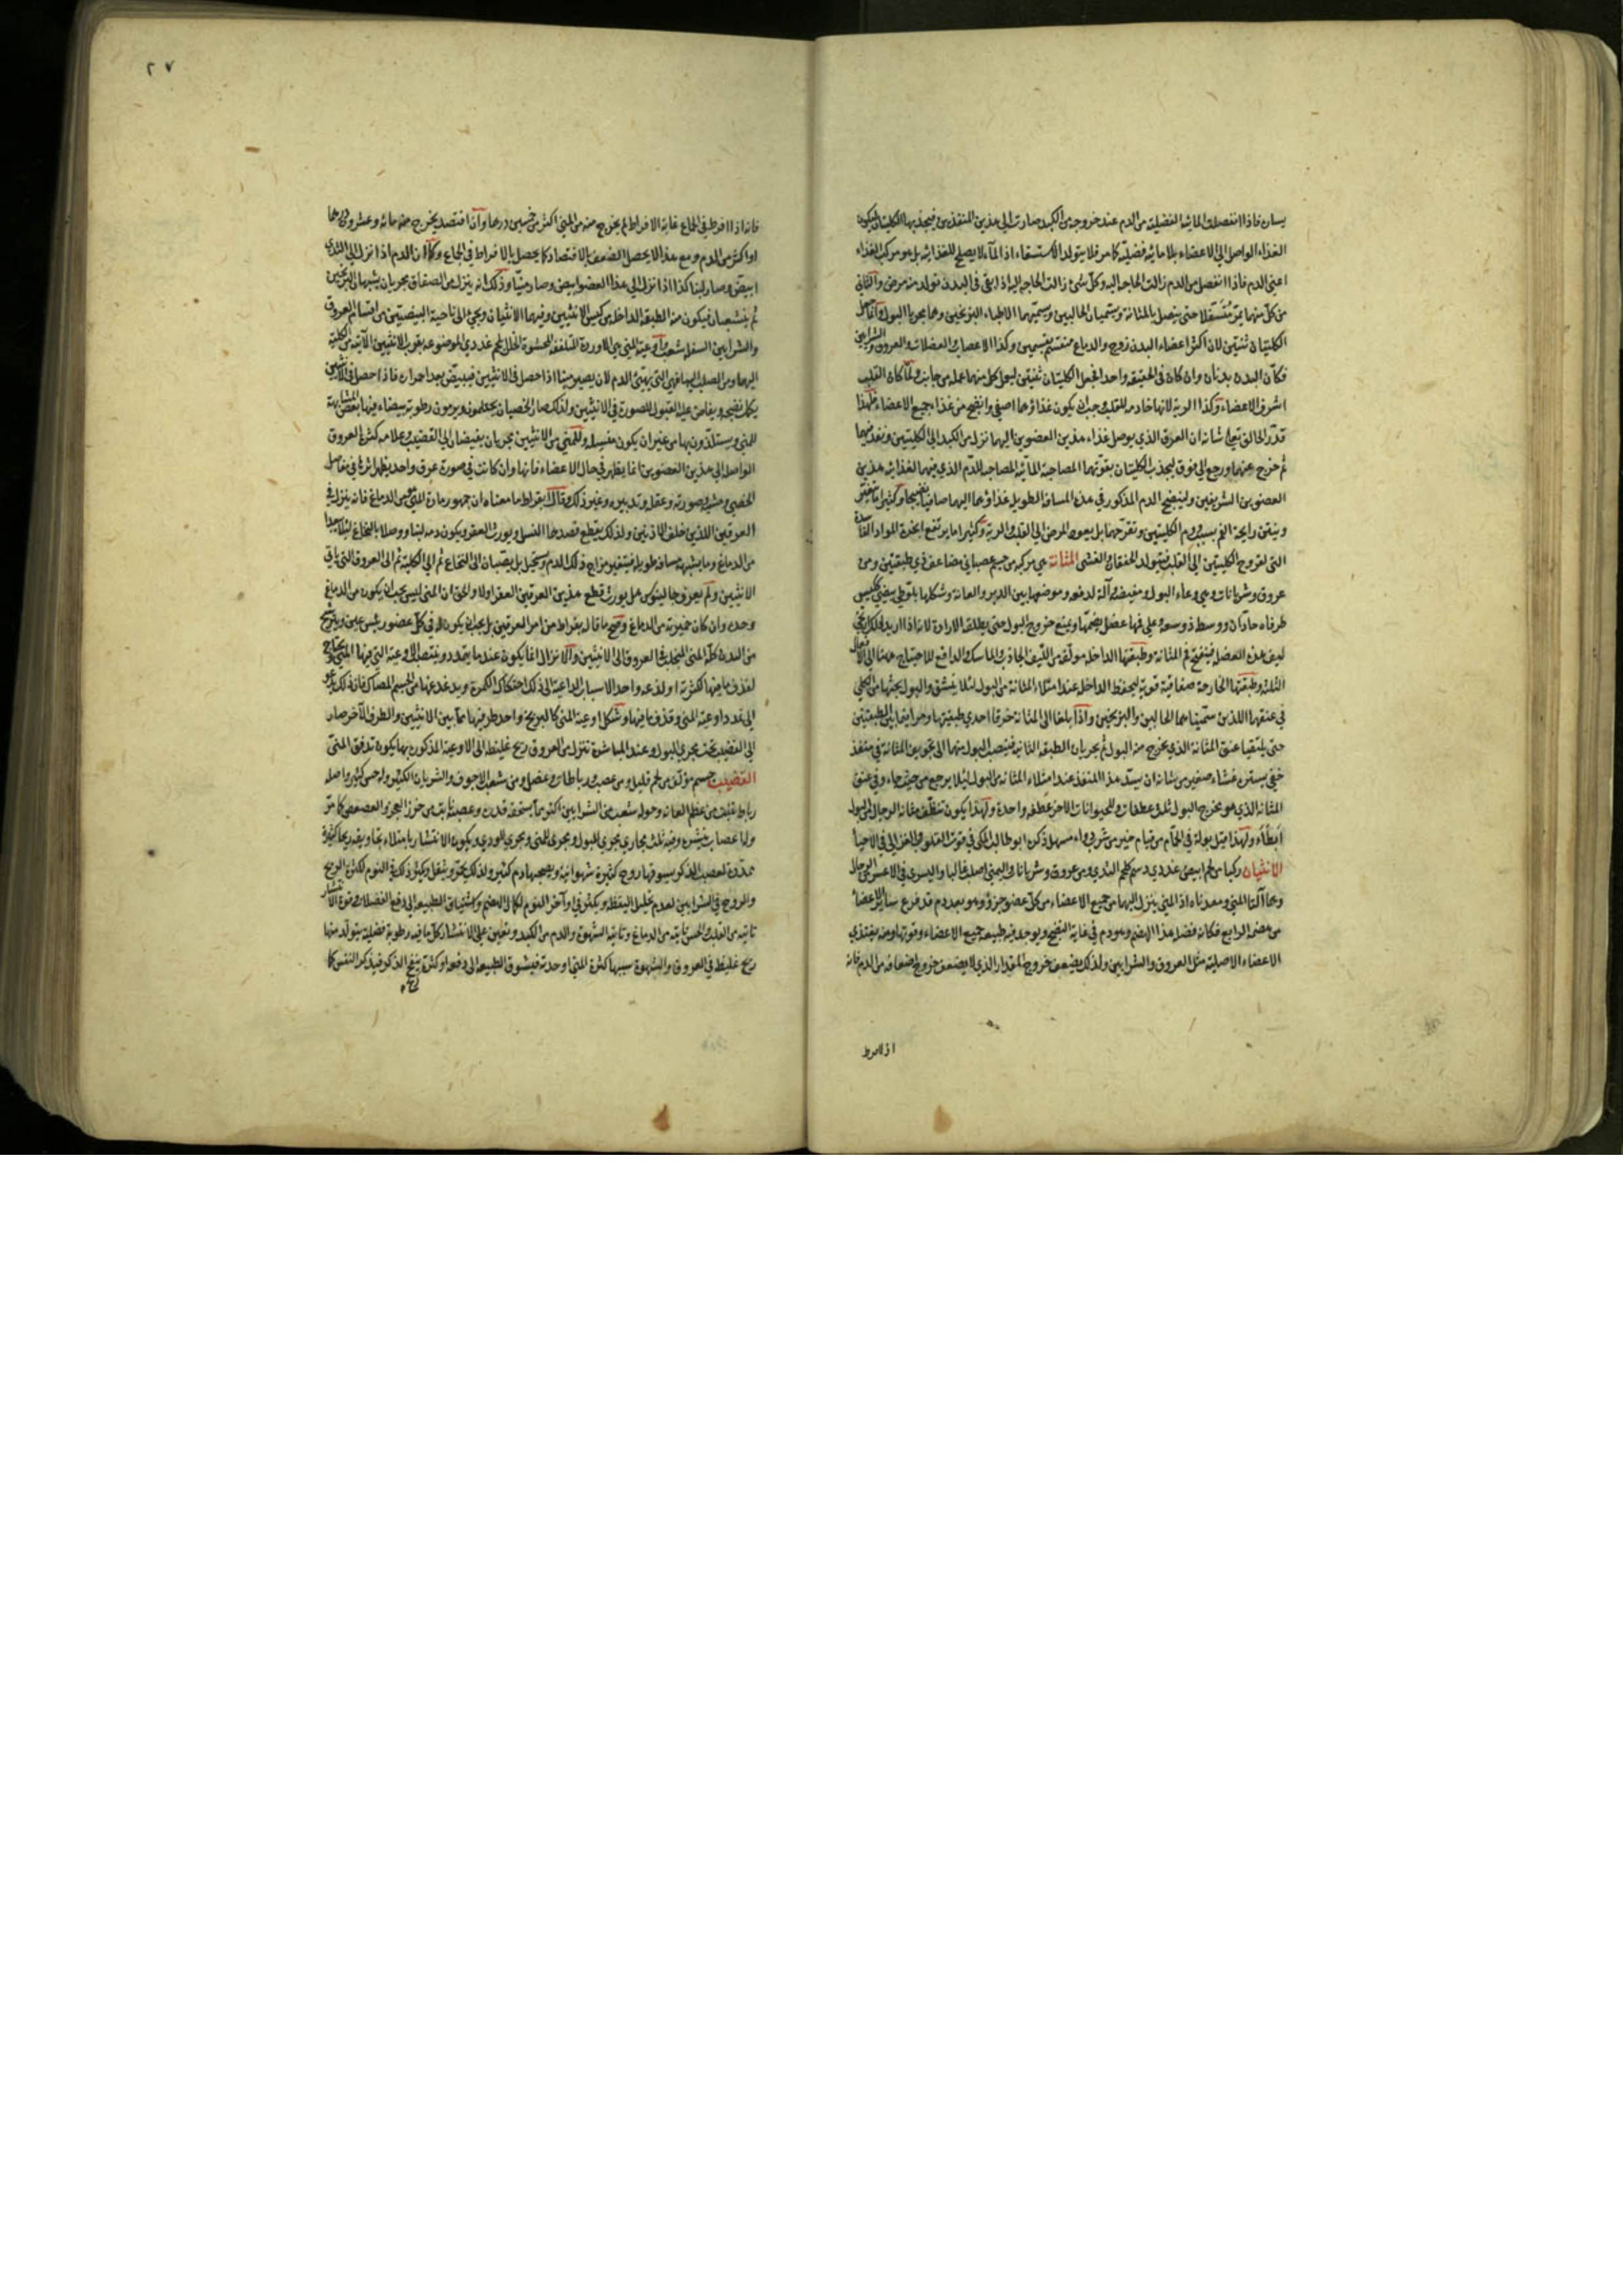 يسان فاذا انفصلت المائية الفضلية من الدم عند خروجه من الكبد صارت الى هذين المنفذين فيجذبها الكليتان ليكون
الغذاء الواصل الى الاعضاء بلا مائية فضلية كما مر فلا يتولد الاستسقاء اذ الماء لا يصلح للغذائية بل هو مركب الغذاء
اعنى الدم فاذا انفصل من الدم زالت الحاجة اليه وكل شئ زالت الحاجة اليه اذا بقى فى البدن تولد منه مرض والثانى
من كل منهما يمر متسفلا حتى يتصل بالمثانة ويسميان الحالبين ويسميهما الاطباء البربخين وهما مجريا البول وانما جعل
الكليتان ثنتين لان اكثر اعضاء البدن زوج والدماغ منقسم بقسمين وكذا الاعصاب والعضلات والعروق والشرايين
فكان البدن بدنان وان كان فى الحقيقة واحدا فجعل الكليتان ثنتين ليحمل كل منهما عمله من جانب ولما كان القلب
اشرف الاعضاء وكذا الرية لانها خادمة للقلب وجب ان يكون غذاؤهما اصفى وانضج من غذاء جميع الاعضاء فلهذا
قدر الخالق تعالى شانه ان العرق الذي يوصل غذاء هذين العضوين اليهما نزل من الكبد الى الكليتين ونفذ فيهما
ثم خرج عنهما ورجع الى فوق ليجذب الكليتان بقوتهما المصاحبة المائية المصاحبة للدم الذي فيهما لغذائية هذين
العضوين الشريفين ولينضج الدم المذكور في هذه المسافة الطويلة غذاؤهما اليهما صافيا نضيجا وكثيرا ما يتغير
وينتن رايحة الفم بسبب ورم الكليتين وتقرحهما بل يعود المرض الى القلب والرية وكثيرا ما يرتفع ابخرة المواد الفاسدة
التى لقروح الكليتين الى القلب فيتولد الخفقان والغشى المثانة هي مركبة من جسم عصباني مضاعف ذي طبقتين ومن
عروق وشريانات وهي وعاء البول ومغيضه وآلة لدفعه وموضعها بين الدبر والعانة وشكلها بلوطى بيضى ككيس
طرفاه حادان ووسطه ذو سعة وعلى فمها عضل يضمها ويمنع خروج البول حتى يطلقه الارادة لانه اذا اريد ذلك
ليف هذه العضلة فينفتح فم المثانة وطبقتها الداخلة مولفة من الليف الجاذب والماسك والدافع للاحتياج ههنا الى الافعال
الثلثة وطبقتها الخارجة صفاقية قوية ليحفظ الداخلة عند امتلاء المثانة من البول لئلا ينشق والبول يجئها من الكلى
في عنقها اللذين سميناهما الحالبين والبربخين واذا بلغا الى المثانة خرقا احدي طبقتيها ومرا فيما بين الطبقتين
حتى يلتقيا عنق المثانة الذي يخرج منه البول ثم يجريان الطبقة الثانية فيصب البول منهما الى تجويف المثانة في منفذ
خفي يستره غشاء صغير من شانه ان يسد هذا المنفذ عند امتلاء المثانة من البول لئلا يرجع من حيث جاء وفي عنق
المثانة الذي هو مخرج البول ثلث عطفات وللحيوانات الاخر عطفة واحدة ولهذا يكون تنظف مثانة الرجال من البول
ابطأ ولهذا قيل بولة في الحمام من قيام خير من شربة دواء مسهل ذكره ابو طالب المكى في قوت القلوب والغزالى في الاحيا
الانثيان ركبا من لحم ابيض غددي دسم كلحم الثدي ومن عروق وشريانات واليمنى اصلب غالبا واليسرى في الاعسر من الرجال
وهما آلتا المني ومعدناه اذ المني ينزل اليهما من جميع الاعضاء من كل عضو جزؤ وهو بعد دم قد فرغ سائر الاعضاء
من هضمه الرابع فكانه فضل هذا الهضم وهو دم في غاية النضج ويوجد فيه طبيعة جميع الاعضاء وقوتها ومنه يغتذي
الاعضاء الاصلية مثل العروق والشرايين ولذلك يضعف خروج المقدار الذي لا يضعف خروج اضعافه من الدم فانه
اذا افرط
٢٧
فانه اذا افرط في الجماع غاية الافراط لم يخرج منه من المني اكثر من خمسين درهما وان افتصد يخرج منه مائة وعشرون درهما
او اكثر من الدم ومع هذا لا يحصل الضعف بالافتصاد كما يحصل بالافراط فى الجماع وكما ان الدم اذا نزل الى الثدي
ابيض وصار لبنا كذا اذا نزل الى هذا العضو ابيض وصار منيا وذلك انه ينزل من الصفاق مجريان يشبهان البربخين
ثم يتشعبان فيكون منه الطبقة الداخلة من كيس الانثيين وفيهما الانثيان ويجئ الى ناحية البيضتين من اقسام العروق
والشرايين السفلى شعب واوعية المني هي الاوردة المتلففة المحشوة الخلل بلحم غددي الموضوعة بقرب الانثيين الآتية من الكلية
اليهما ومن الصلب اليهما فهي التي يهيئ الدم لان يصير منيا اذا حصل فى الانثيين فيبيض بعد احمراره فاذا حصل فى الانثيين
يكمل نضجه ويفاض عليه القبول للصورة فى الانثيين ولذلك صار الخصيان يحتلمون ويرمون رطوبة بيضاء فيها بعض المشابهة
للمني ويستلذون بها من غير ان يكون منيا وللمني من الانثيين مجريان يفيضان الى القضيب وعلامة كثرة العروق
الواصلة الى هذين العضوين انما يظهر في حال الاعضاء فانها وان كانت في صورة عرق واحد يظهر اثرها في مفاصل
الخصي ومشيه وصورته وعقله وتدبيره وغير ذلك وقال بقراط ما معناه ان جمهور مادة المنى هو من الدماغ فانه ينزل في
العرقين اللذين خلف الاذنين ولذلك يقطع فصدهما النسل ويورث العقر ويكون دمه لبنيا ووصلا بالنخاع لئلا يبعدا
من الدماغ وما يشبهه مسافة طويلة فيتغير مزاج ذلك الدم ويستحيل بل يصبان الى النخاع ثم الى الكلية ثم الى العروق التى ياتي
الانثيين ولم يعرف جالينوس هل يورث قطع هذين العرقين العقر اولا والحق ان المنى ليس يجب ان يكون من الدماغ
وحده وان كان خميرته من الدماغ وصح ما قاله بقراط من امر العرقين بل يجب ان يكون له في كل عضو رئيس عين ويترشح
من البدن كله المنى المتحلب فى العروق الى الانثيين والانزال انما يكون عند ما يتمدد وينتصب الاوعية التى فيها المنى ويحتاج
لقذف ما فيها لكثرته او لذعه واحد الاسباب الداعية الى ذلك احتكاك الكمرة وتدغدغها من الجسم المصاك فان ذلك يدعو
الى تمدد اوعية المنى وقذف ما فيها وشكل اوعية المنى كالبربخ واحد طرفيها مما بين الانثيين والطرف الآخر صار
الى القضيب تحت مجرى البول وعند المباشرة تنزل من العروق ريح غليظة الى الاوعية المذكورة بها يكون تدفق المنى
القضيب جسم مؤلف من لحم قليل ومن عصب ورباطات وعضل ومن شعب الاجوف والشريان الكثير وله حس كثير واصله
رباط ينبت من عظم العانة وحوله شعب من الشرايين اكثر مما يستحقه قدره وعصبه نابتة من خرز العجز والعصعص كما مر
وله اعصاب ينتشره وفيه ثلث مجاري مجرى للبول ومجرى للمنى ومجرى للودى ويكون الانتشار بامتلاء تجاويفه ريحا كثيرة
ممددة لعصب الذكر يسوقها روح كثيرة شهوانية ويصحبها دم كثير ولذلك يحمر ويثقل وكثر ذلك فى النوم لكثرة الريح
والروح فى الشرايين لعدم تحليل اليقظة ويكثر في اواخر النوم لكمال الهضم واشتياق الطبيعة الى دفع الفضلات وقوة الانتشار
تاتيه من القلب والحس تاتيه من الدماغ وتاتيه الشهوة والدم من الكبد ويعين على الانتشار كل ما فيه رطوبة فضلية يتولد منها
ريح غليظة في العروق والشهوة سببها كثرة المنى او حدته فيشوق الطبيعة الى دفعه او كثرة ريح الذكر فيذكر النفس كما